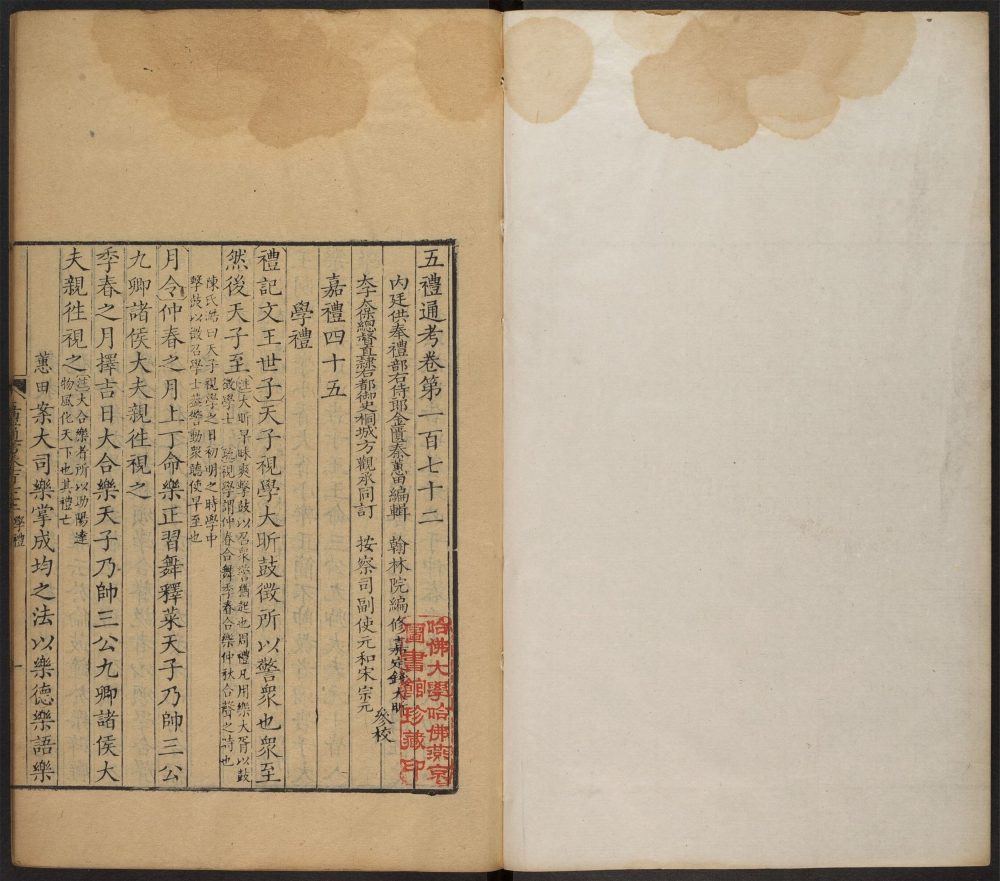 五禮通考卷第一百七十二
內廷供奉禮部右侍郎金匱秦蕙田編輯 翰林院編修嘉定錢大昕
李太保總督直隸右都御史桐城方觀承同訂 按察司副使元和宋宗元
參校
嘉禮四十五
學禮
禮記文王世子天子視學大昕鼓徵所以警衆也衆至
然後天子至
注大昕早昧爽擊鼓以召衆警猶起也周禮凡用樂大胥以鼓
徵學士 疏視學謂仲春合舞季春合樂仲秋合聲之時也
陳氏澔曰天子視學之日初明之時學中
擊鼓以徵召學士蓋警動衆聽使早至也
月令仲春之月上丁命樂正習舞釋菜天子乃帥三公
九卿諸侯大夫親往視之
季春之月擇吉日大合樂天子乃帥三公九卿諸侯大
夫親往視之
注大合樂者所以助陽達
物風化天下也其禮亡
蕙田案大司樂掌成均之法以樂德樂語樂
學禮
一
哈佛大學哈佛燕京
圖書館珍藏印